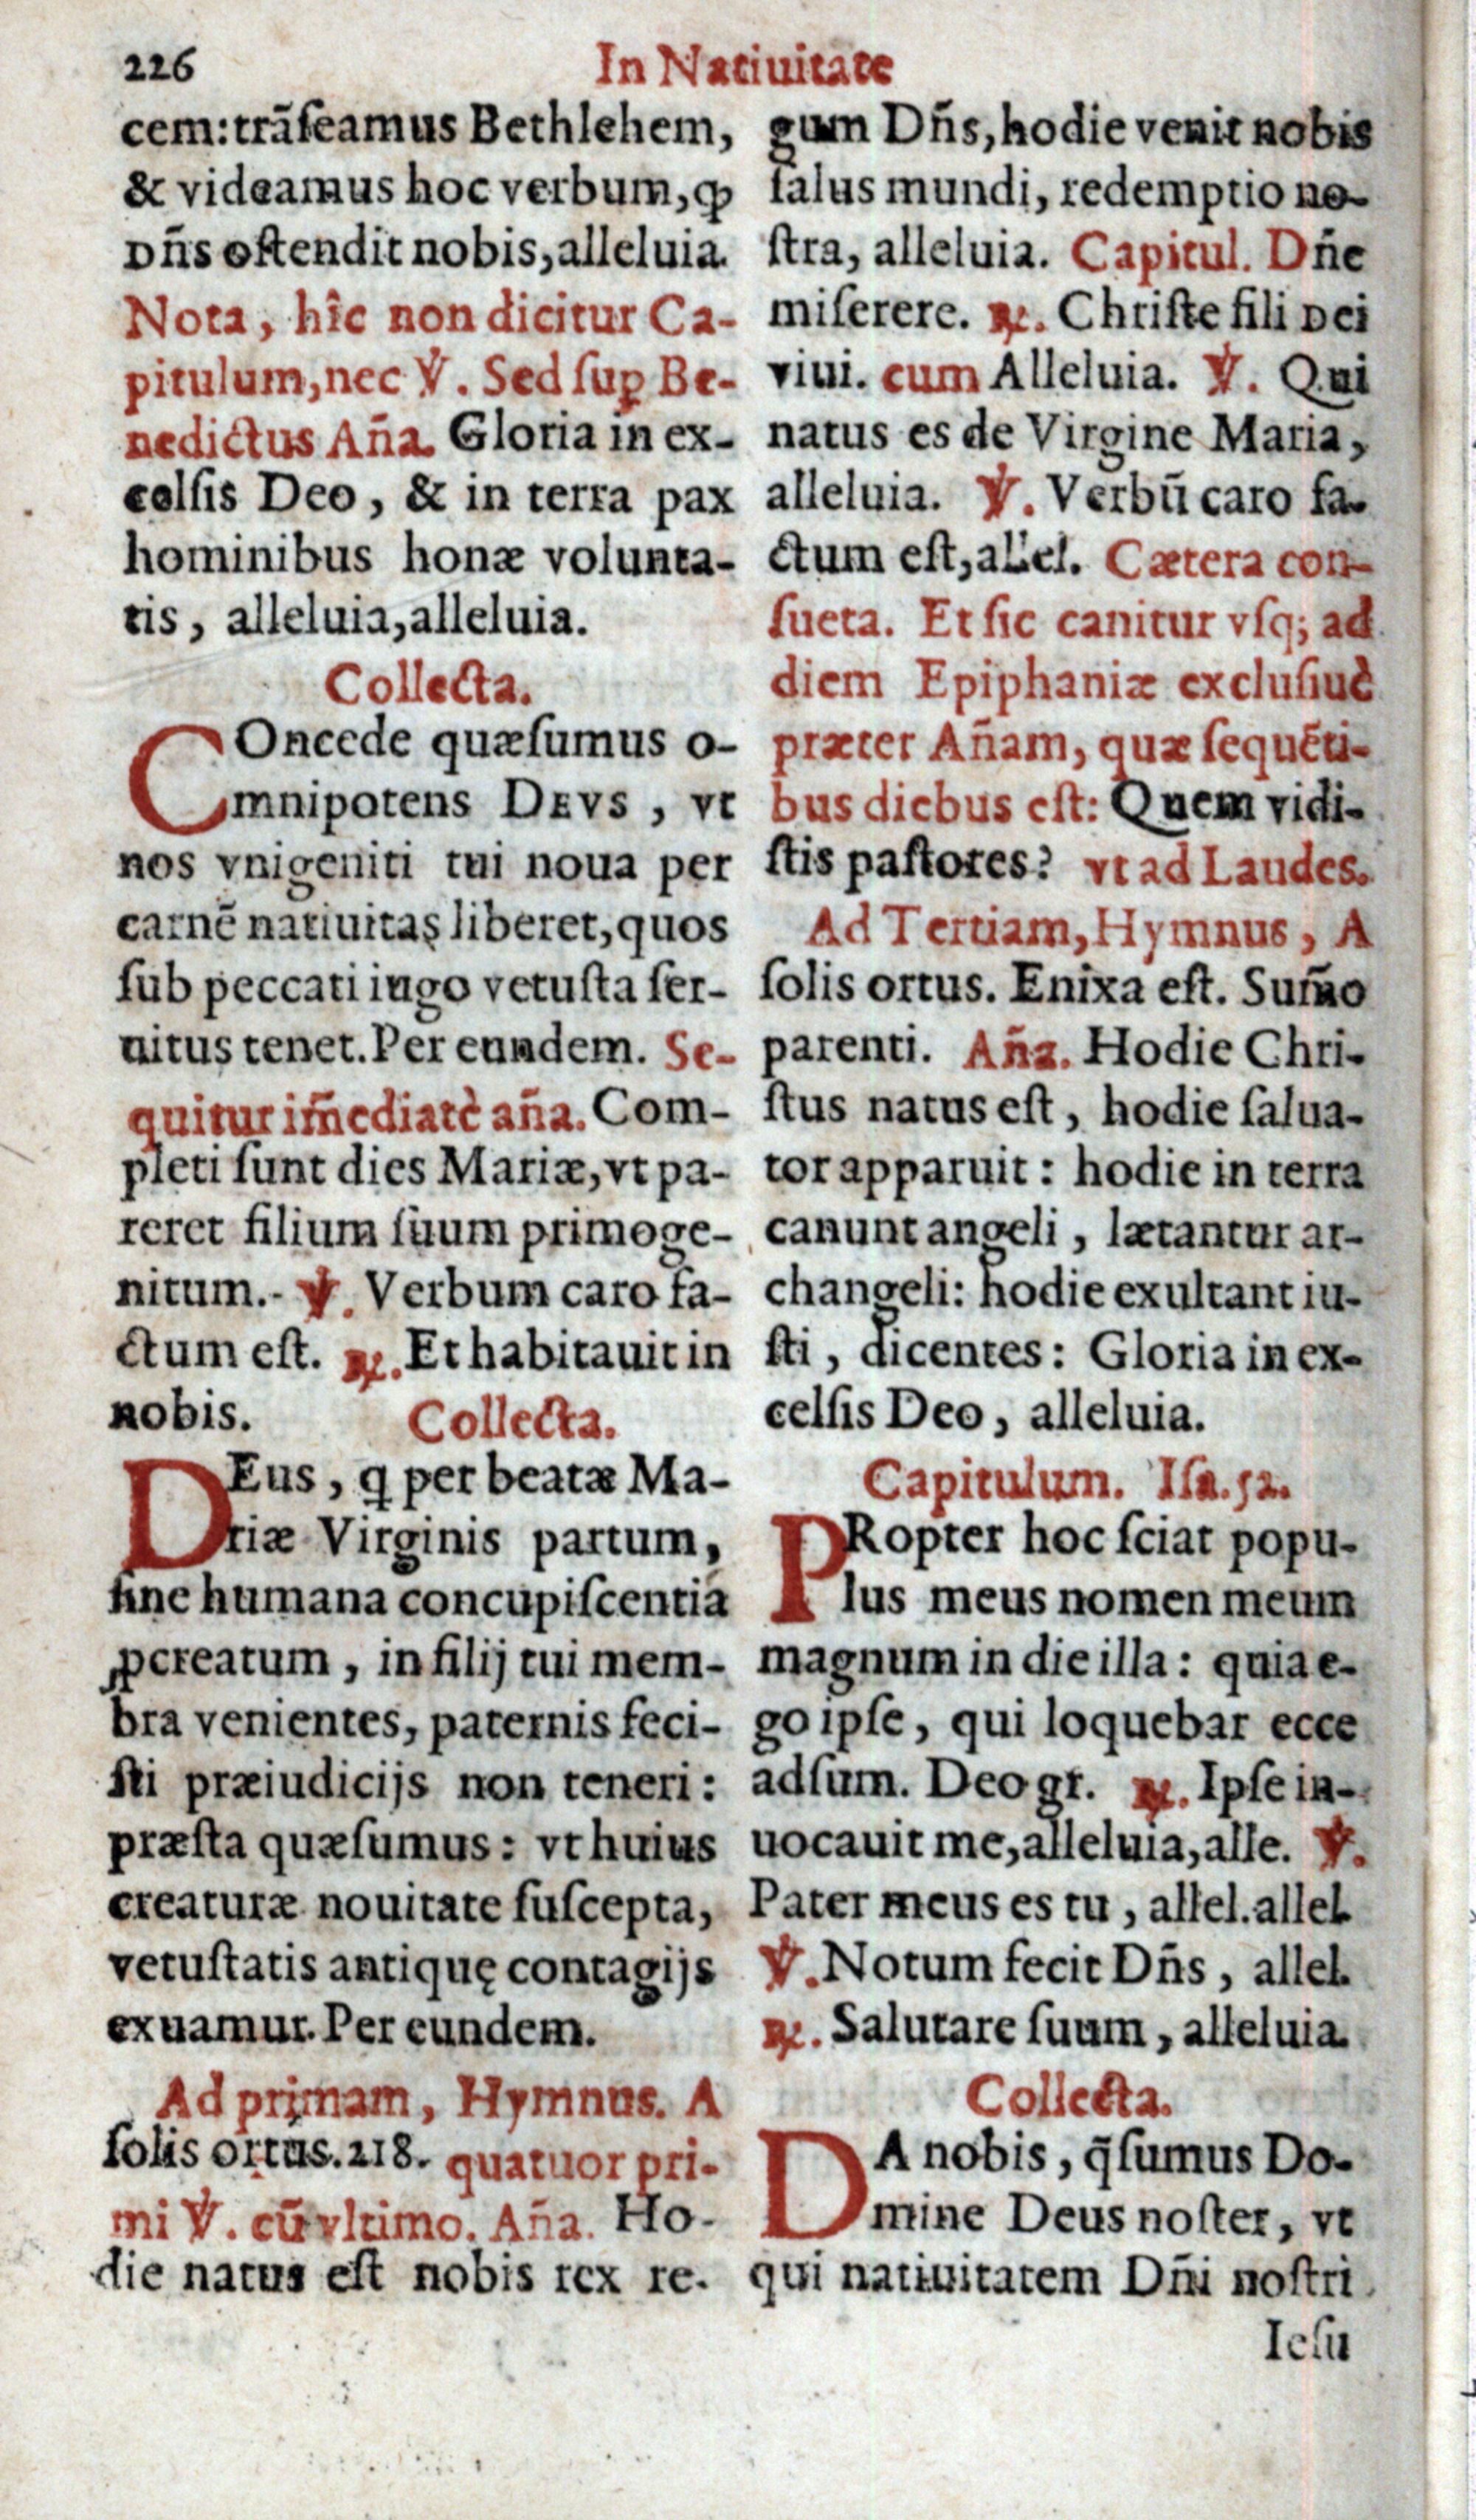 226
In Natiuitate
cem: trãſeamus Bethlehem,
& videamus hoc verbum, ꝙ
Dñs oſtendit nobis, alleluia.
Nota, hîc non dicitur Ca-
pitulum, nec ℣. Sed ſuꝑ Be-
nedictus Aña. Gloria in ex-
celſis Deo, & in terra pax
hominibus honæ volunta-
tis, alleluia, alleluia.
Collecta.
COncede quæſumus o-
mnipotens DEVS, vt
nos vnigeniti tui noua per
carnẽ natiuitas liberet, quos
ſub peccati iugo vetuſta ſer-
uitus tenet. Per eundem. Se-
quitur im̃ediatè aña. Com-
pleti ſunt dies Mariæ, vt pa-
reret filium ſuum primoge-
nitum. ℣. Verbum caro fa-
ctum eſt. ℟. Et habitauit in
nobis. Collecta.
DEus, ꝗ per beatæ Ma-
riæ Virginis partum,
ſine humana concupiſcentia
ꝓcreatum, in filij tui mem-
bra venientes, paternis feci-
ſti præiudicijs non teneri:
præſta quæſumus: vt huius
creaturæ nouitate ſuſcepta,
vetuſtatis antiquę contagijs
exuamur. Per eundem.
Ad primam, Hymnus. A
ſolis ortus. 218. quatuor pri-
mi ℣. cũ vltimo. Aña. Ho-
die natus eſt nobis rex re-
gum Dñs, hodie venit nobis
ſalus mundi, redemptio no-
ſtra, alleluia. Capitul. Dñe
miſerere. ℟. Chriſte fili Dei
viui. cum Alleluia. ℣. Qui
natus es de Virgine Maria,
alleluia. ℣. Verbũ caro fa-
ctum eſt, allel. Cætera con-
ſueta. Et ſic canitur vſq; ad
diem Epiphaniæ excluſiuè
præter Añam, quæ ſequẽti-
bus diebus eſt: Quem vidi-
ſtis paſtores? vt ad Laudes.
Ad Tertiam, Hymnus, A
ſolis ortus. Enixa eſt. Sum̃o
parenti. Aña. Hodie Chri-
ſtus natus eſt, hodie ſalua-
tor apparuit: hodie in terra
canunt angeli, lætantur ar-
changeli: hodie exultant iu-
ſti, dicentes: Gloria in ex-
celſis Deo, alleluia.
Capitulum. Iſa. 52.
PRopter hoc ſciat popu-
lus meus nomen meum
magnum in die illa: quia e-
go ipſe, qui loquebar ecce
adſum. Deo gr. ℟. Ipſe in-
uocauit me, alleluia, alle. ℣.
Pater meus es tu, allel. allel.
℣. Notum fecit Dñs, allel.
℟. Salutare ſuum, alleluia.
Collecta.
DA nobis, q̃ſumus Do-
mine Deus noſter, vt
qui natiuitatem Dñi noſtri
Ieſu